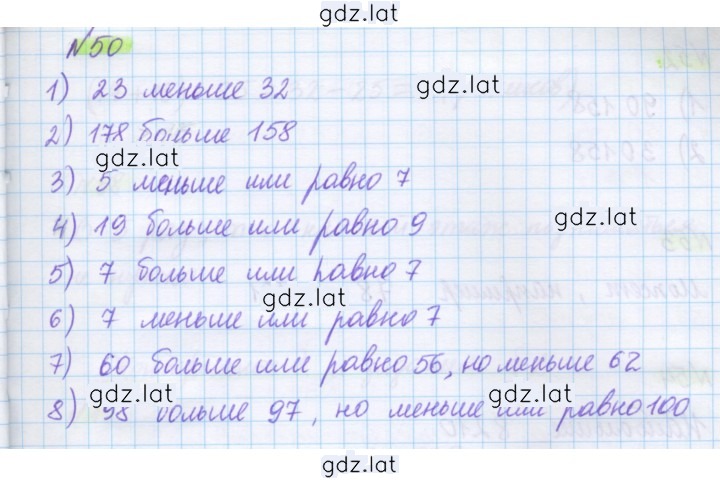 gdz.lat
№50
1) 23 меньше 32
gdz.lat
2) 178 больше 158
gdz.lat
3) 5 меньше или равно 7
gdz.lat
4) 19 больше или равно 9
5) 7 больше или равно 7
gdz.lat
6) 7 меньше или равно 7
7) 60 больше или равно 56, но меньше 62
gdz.lat
gdz.lat
8) 98 больше 97, но меньше или равно 100
gdz.lat